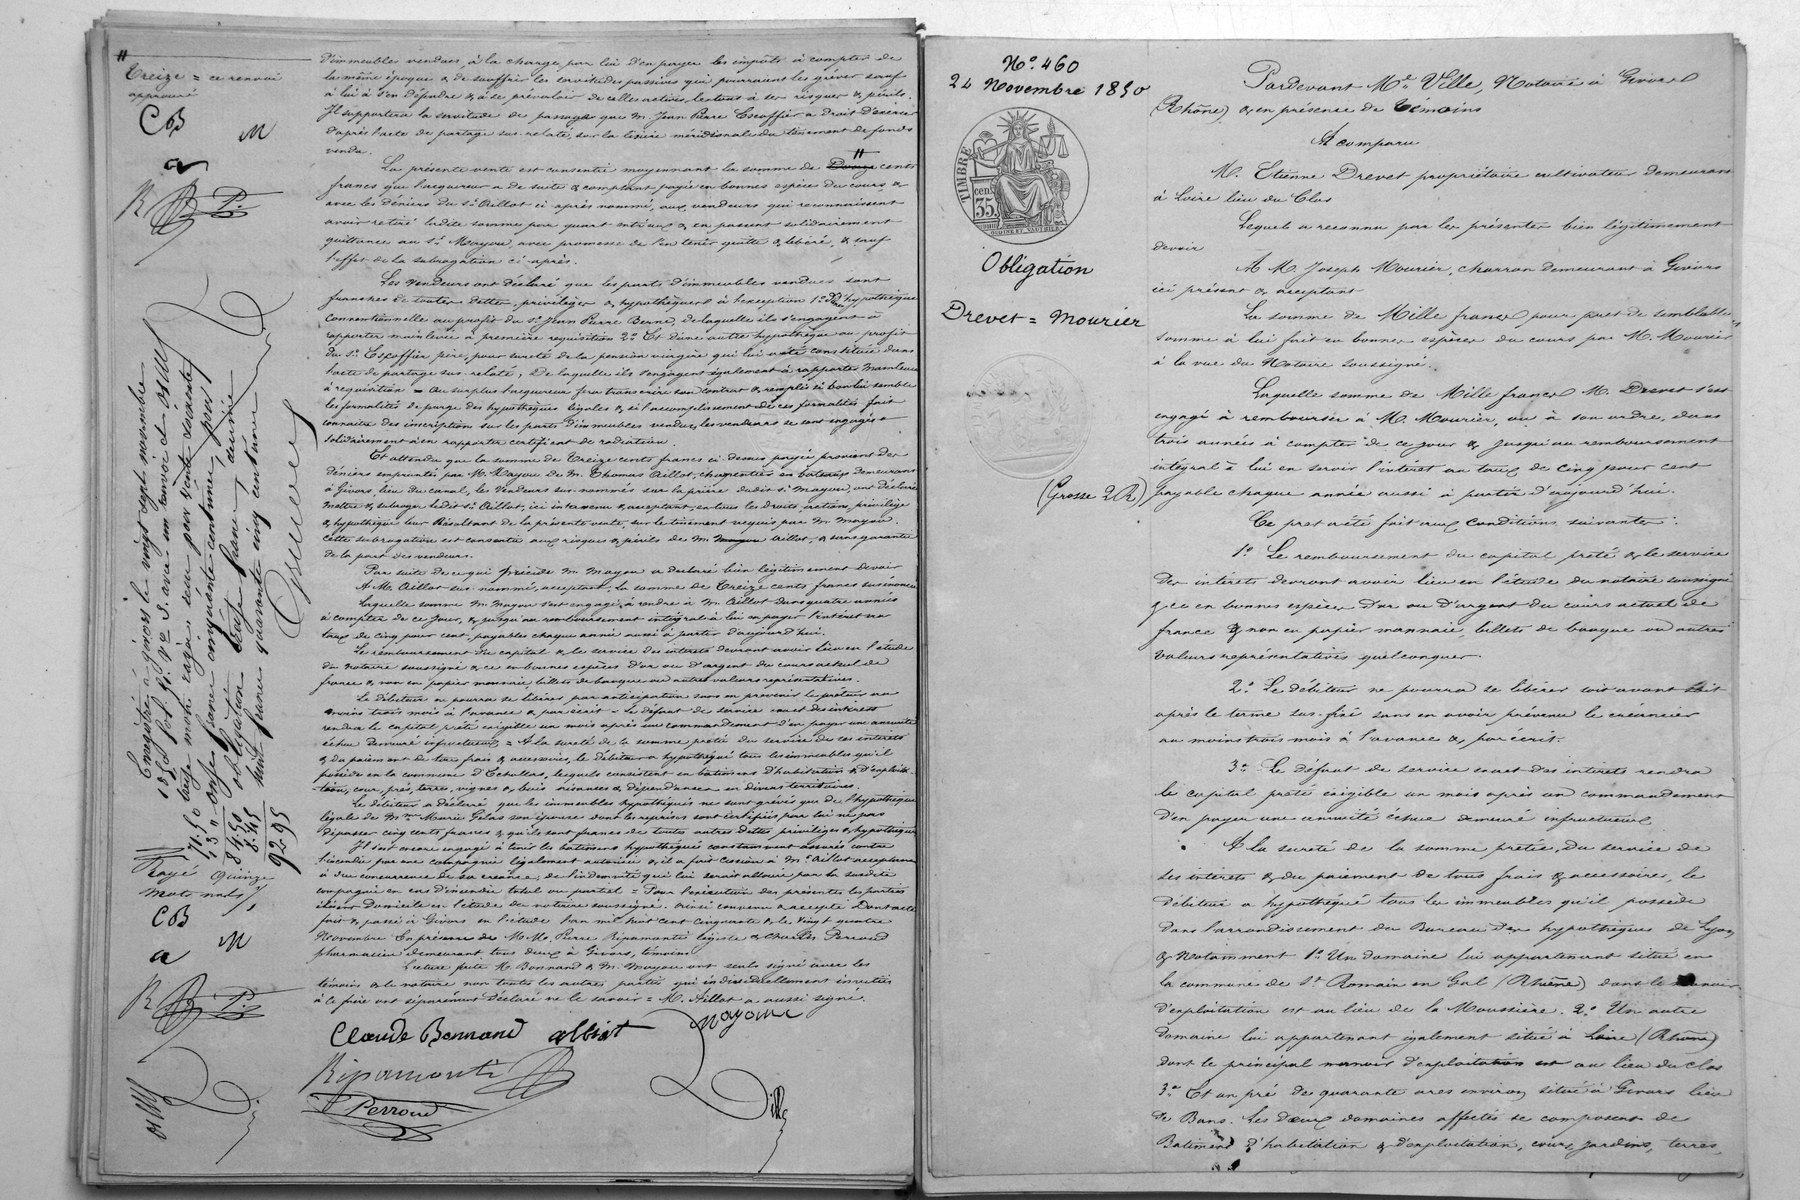 Treize = ce renvoi
approuvé
CB
M
a
R P.
d'immeubles vendues, à la charge par lui d'en payer les impôts à compter de
la même époque & de souffrir les servitudes passives qui pourraient les gréver sauf
à lui à s'en défendre & à se prévaloir de celles actives, les tous à ses risques & périls.
Il supportera la servitude de passage que M. Jean Pierre Escoffier a droit d'exercer
d'après l'acte de partage sus-relaté, sur la lisière méridionale du tènement de fonds
vendu.
La présente vente est consentie moyennant la somme de cents
francs que l'acquéreur a de suite & comptant payée en bonnes espèces du cours &
avec les deniers du sr. Aillot ci après nommé, aux vendeurs qui reconnaissent
avoir retiré ladite somme par quart entr'eux & en passent solidairement
quittance au sr. Mayou, avec promesse de l'en tenir quitte & libéré, & sauf
l'effet de la subrogation ci-après.
Les Vendeurs ont déclaré que les parts d'immeubles vendues sont
franches de toutes dettes, privilèges & hypothèques à l'exception 1º D'une hypothèque
Conventionnelle au profit du sr. Jean Pierre Berne, de laquelle ils s'engagent à
rapporter mainlevée à première requisition 2º Et d'une autre hypothèque au profit
du sr. Escoffier père, pour sureté de la pension viagère qui lui a été constituée dans
l'acte de partage sus-relaté, De laquelle ils s'engagent également à rapporter mainlevée
à réquisition = Au surplus l'acquéreur fera transcrire son contrat & remplir si bon lui semble
les formalités de purge des hypothèques légales & si l'accomplissement de ces formalités fait
connaitre des inscriptions sur les parts d'immeubles vendues, les vendeurs se sont engagés
solidairement à en rapporter certificat de radiation.
Et attendu que la somme de Treize cents francs ci-dessus payée provient des
deniers empruntés par M. Mayou de M. Thomas Aillot, charpentier en bateaux demeurant
à Givors, lieu du canal, les Vendeurs sus-nommés sur la prière dudit sr. Mayou, ont déclaré
mettre & subroger ledit sr. Aillot, ici intervenu & acceptant, en tous les droits, actions, privilège
& hypothèque leur Résultant de la présente vente, sur le tènement acquis par M. Mayou.
Cette subrogation est consentie aux risques & périls de M. Aillot, & sans garantie
de la part des vendeurs.
Par suite de ce qui précède M. Mayou a déclaré bien légitimement devoir
A M. Aillot sus-nommé, acceptant, la somme de Treize cents francs susénoncée
Laquelle somme M. Mayou s'est engagé, à rendre à M. Aillot dans quatre années
à compter de ce jour, & jusqu'au remboursement intégral à lui en payer l'intérêt au
taux de cinq pour cent, payables chaque année aussi à partir d'aujourd'hui.
Le remboursement du capital & le service des intérêts devront avoir lieu en l'étude
du Notaire soussigné & ce en bonnes espèces d'or ou d'argent du cours actuel de
france & non en papier monnaie, billets de banque ou autres valeurs représentatives.
Le débiteur ne pourra se libérer par anticipation sans en prévenir le prêteur au
moins trois mois à l'avance & par écrit = Le défaut de service exact des intérêts
rendra le capital prêté exigible un mois après un commandement d'en payer une annuité
échue demeuré infructueux = A la sureté de la somme prêtée du service de ses intérêts
& du paiement de tous frais & accessoires, le débiteur a hypothéqué tous les immeubles qu'il
possède en la commune d'Echallas, lesquels consistent en batimens d'habitation & d'exploita-
tion, cour, prés, terres, vignes & bois & dépendances en divers territoires.
Le débiteur a déclaré que les immeubles hypothéqués ne sont grévés que de l'hypothèque
légale de Mme Marie Gelas son épouse dont les reprises sont certifiées par lui ne pas
dépasser cinq cents francs & qu'ils sont francs de toutes autres dettes privilèges & hypothèques
Il s'est encore engagé à tenir les batimens hypothéqués constamment assurés contre
l'incendie par une compagnie légalement autorisée & il a fait cession à M. Aillot acceptant
à due concurrence de sa créance, de l'indemnité qui lui serait allouée par la susdite
compagnie en cas d'incendie total ou partiel = Pour l'exécution des présentes les parties
élisent domicile en l'étude du notaire soussigné. Ainsi convenu & accepté Dont acte
fait & passé à Givors en l'étude l'an mil huit cent cinquante & le vingt quatre
Novembre En présence de M.M. Pierre Ripamonti légiste & Charles Perroud
pharmacien demeurant tous deux à Givors, témoins
Lecture faite M. Bonnand & M. Mayou ont seuls signé avec les
témoins & le notaire non toutes les autres parties qui individuellement invitées
à ce faire ont séparément déclaré ne le savoir = M. Aillot a aussi signé.
Claude Bonnand
Mayou
Ripamonti
Perroud
Ville
Enregistré à givors le vingt sept novembre
1850 fol. 9. avec un renvoi et
obligation treize francs
71.50
13 "
84.50
8.45
92.95
Rayé quinze
mots nuls
CB
M
a
R P.
Nº. 460
24 Novembre 1850
TIMBRE
35
cen.
Obligation
Drevet = Mourier
(Grosse 2R)
Pardevant Me. Ville, Notaire à Givors
(Rhône) & en présence de témoins
A comparu
M. Etienne Drevet propriétaire cultivateur demeurant
à Loire lieu du Clos
Lequel a reconnu par les présentes bien légitimement
devoir
A M. Joseph Mourier, charron demeurant à Givors
ici présent & acceptant
La somme de Mille francs pour prêt de semblable
somme à lui fait en bonnes espèces du cours par M. Mourier
à la vue du Notaire soussigné.
Laquelle somme de Mille francs M. Drevet s'est
engagé à rembourser à M. Mourier, ou à son ordre, dans
trois années à compter de ce jour & jusqu'au remboursement
intégral à lui en servir l'intérêt au taux de cinq pour cent
payable chaque année aussi à partir d'aujourd'hui.
Ce prêt a été fait aux conditions suivantes:
1º Le remboursement du capital prêté & le service
des intérêts devront avoir lieu en l'étude du notaire soussigné
& ce en bonnes espèces d'or ou d'argent du cours actuel de
france & non en papier monnaie, billets de banque ou autres
valeurs représentatives quelconques.
2º Le débiteur ne pourra se libérer soit avant soit
après le terme sus-fixé sans en avoir prévenu le créancier
au moins trois mois à l'avance & par écrit.
3º Le défaut de service exact des intérêts rendra
le capital prêté exigible un mois après un commandement
d'en payer une annuité échue demeuré infructueux
A la sureté de la somme prêtée, du service de
ses intérêts & du paiement de tous frais & accessoires, le
débiteur a hypothéqué tous les immeubles qu'il possède
dans l'arrondissement du Bureau des hypothèques de Lyon
& Notamment 1º Un domaine lui appartenant situé en
la commune de St Romain en Gal (Rhône) dont le manoir
d'exploitation est au lieu de la Moussière. 2º Un autre
domaine lui appartenant également situé à Loire (Rhône)
dont le principal manoir d'exploitation est au lieu du Clos
3º Et un pré de quarante ares environ situé à Givors lieu
de Bans. Les deux domaines affectés se composent de
Batimens d'habitation & d'exploitation, cours, jardins, terres,